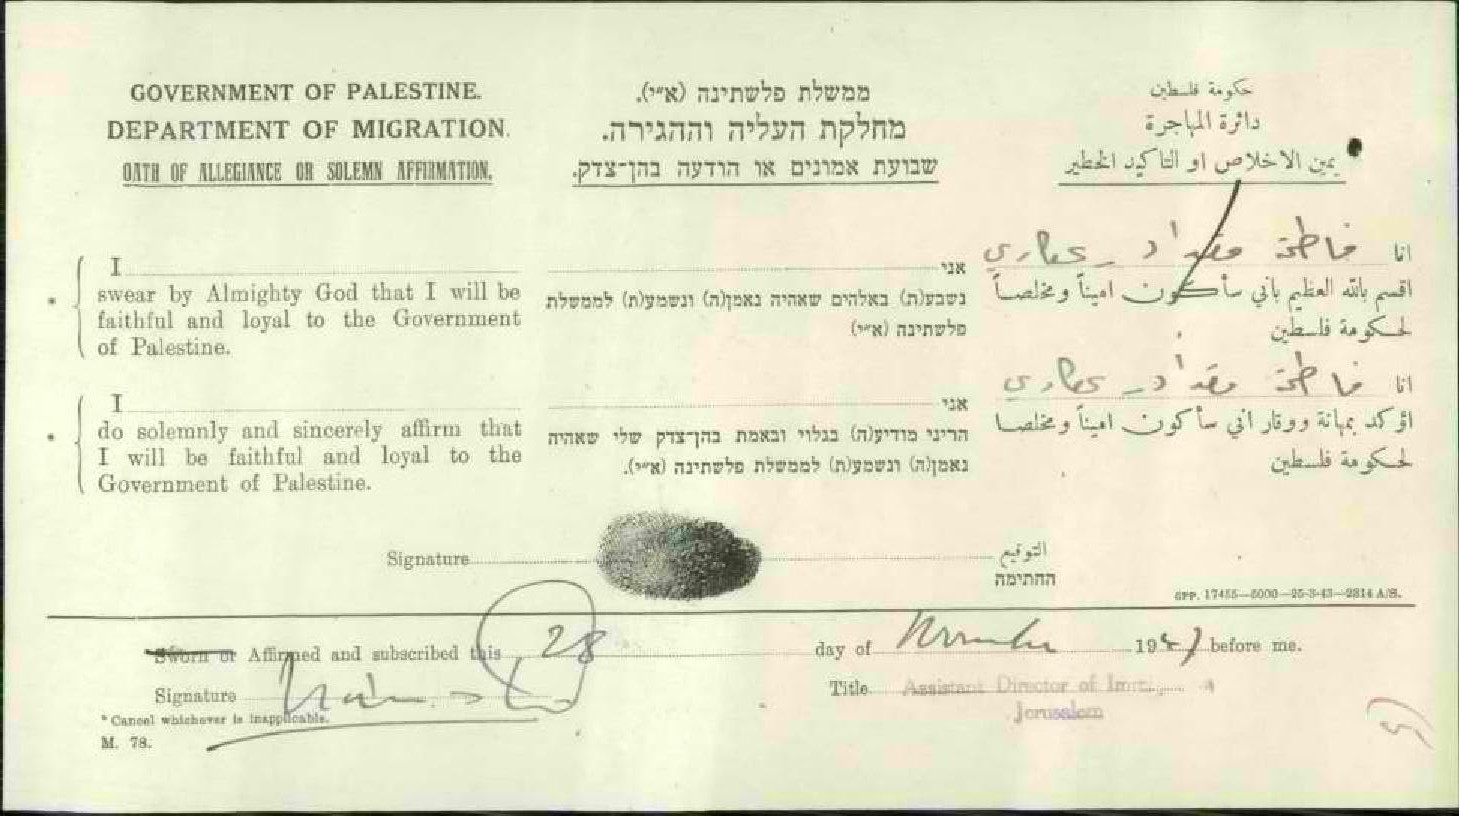 GOVERNMENT OF PALESTINE.
DEPARTMENT OF MIGRATION.
OATH OF ALLEGIANCE OR SOLEMN AFFIRMATION.
I
swear by Almighty God that I will be
faithful and loyal to the Government
of Palestine.
I
do solemnly and sincerely affirm that
I will be faithful and loyal to the
Government of Palestine.
ממשלת פלשתינה (א״י).
מחלקת העליה וההגירה.
שבועת אמונים או הודעה בהן־צדק.
אני
נשבע(ת) באלהים שאהיה נאמן(ה) ונשמע(ת) לממשלת
פלשתינה (א״י)
אני
הריני מודיע(ה) בגלוי ובאמת בהן־צדק שלי שאהיה
נאמן(ה) ונשמע(ת) לממשלת פלשתינה (א״י).
حكومة فلسطين
دائرة المهاجرة
يمين الاخلاص او التاكيد الخطير
انا فاطمة مقداد
اقسم بالله العظيم باني سأكون اميناً ومخلصاً
لحكومة فلسطين
انا فاطمة مقداد
اؤكد بمهانة ووقار اني سأكون اميناً ومخلصا
لحكومة فلسطين
Signature التوقيع
החתימה
GPP. 17455—5000—25-3-43—2814 A/S.
Sworn or Affirmed and subscribed this 28 day of November 1947 before me.
Signature Title Assistant Director of
Jerusalem
* Cancel whichever is inapplicable.
M. 78.